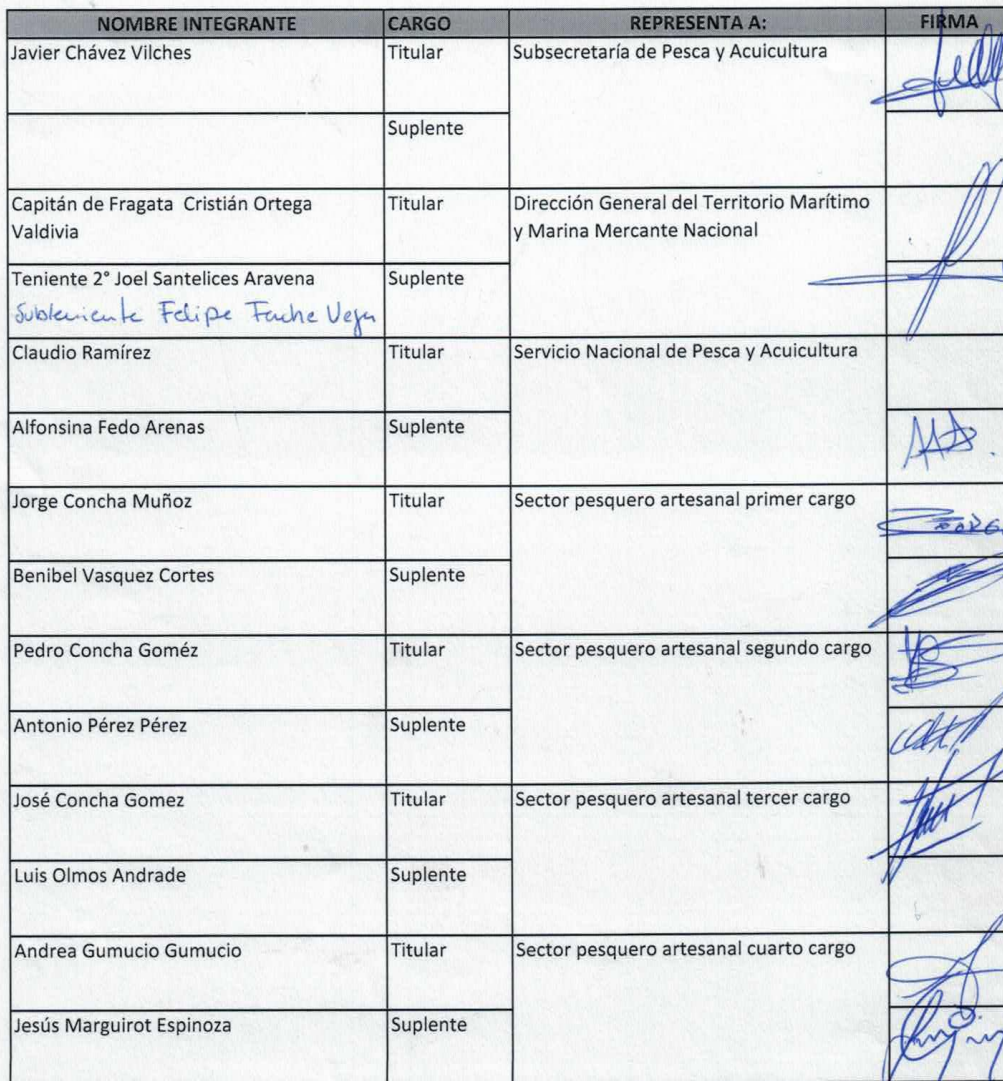 NOMBRE INTEGRANTE CARGO REPRESENTA A: FIRMA
Javier Chávez Vilches Titular Subsecretaría de Pesca y Acuicultura
Suplente
Capitán de Fragata Cristián Ortega Titular Dirección General del Territorio Marítimo
Valdivia y Marina Mercante Nacional
Teniente 2° Joel Santelices Aravena Suplente
Subteniente Felipe Vega
Claudio Ramírez Titular Servicio Nacional de Pesca y Acuicultura
Alfonsina Fedo Arenas Suplente
Jorge Concha Muñoz Titular Sector pesquero artesanal primer cargo
Benibel Vasquez Cortes Suplente
Pedro Concha Goméz Titular Sector pesquero artesanal segundo cargo
Antonio Pérez Pérez Suplente
José Concha Gomez Titular Sector pesquero artesanal tercer cargo
Luis Olmos Andrade Suplente
Andrea Gumucio Gumucio Titular Sector pesquero artesanal cuarto cargo
Jesús Marguirot Espinoza Suplente